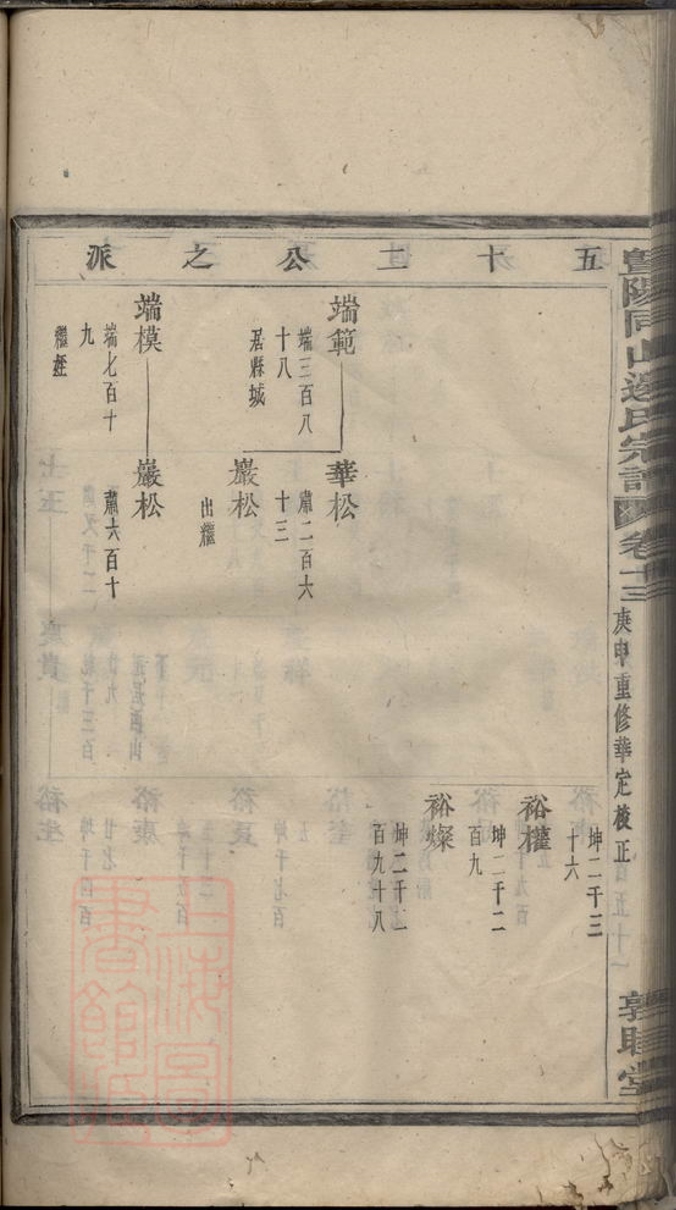 暨陽同山邊氏宗譜 卷十三 庚申重修華定校正 敦睦堂
五十二公之派
坤二千三
十六
裕權
坤二千二
百九
裕燦
坤二千二
百九十八
端範
端三百八
十八
居縣城
華松
肅二百六
十三
巖松
出繼
端模
端七百十
九
繼經
巖松
肅六百十
上海圖書館藏